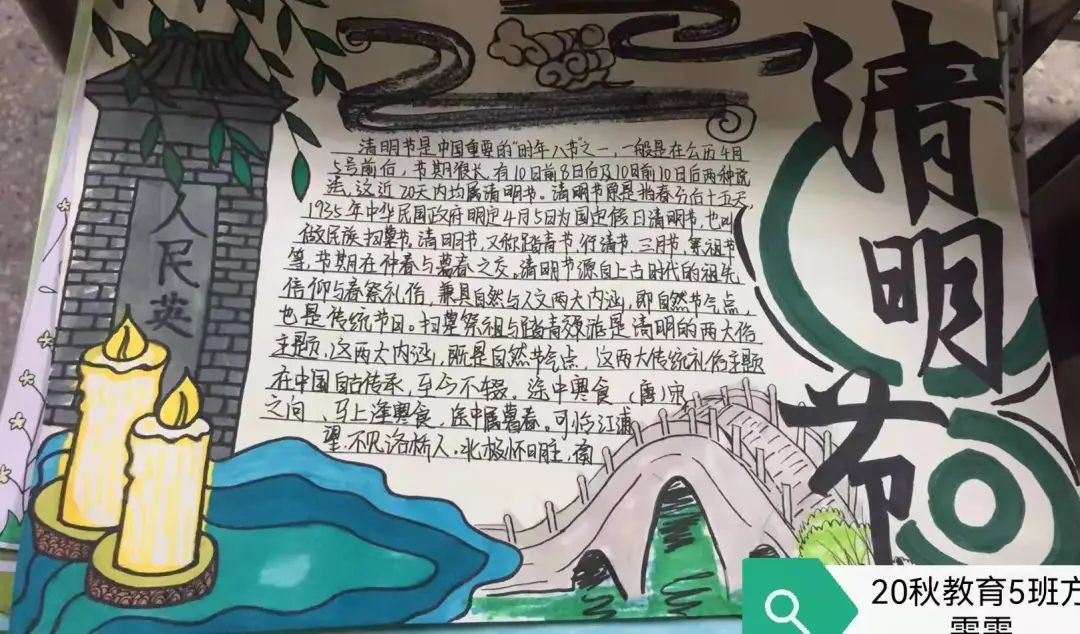 清明节
人民英
清明节是中国重要的"时年八节"之一,一般是在公历4月
5号前后,节期很长,有10日前8日后及10日前10日后两种说
法,这近20天内均属清明节。清明节原是指春分后十五天,
1935年中华民国政府明定4月5日为国定假日清明节,也叫
做民族扫墓节。清明节,又称踏青节、行清节、三月节、祭祖节
等,节期在仲春与暮春之交。清明节源自上古时代的祖先
信仰与春祭礼俗,兼具自然与人文两大内涵,即自然节气点,
也是传统节日。扫墓祭祖与踏青郊游是清明的两大俗
主题,这两大内涵,既是自然节气点,这两大传统礼俗主题
在中国自古传承,至今不辍。途中寒食 (唐)宋
之问 马上逢寒食,途中属暮春。可怜江浦
望,不见洛桥人。北极怀明主,南
20秋教育5班方
雯雯